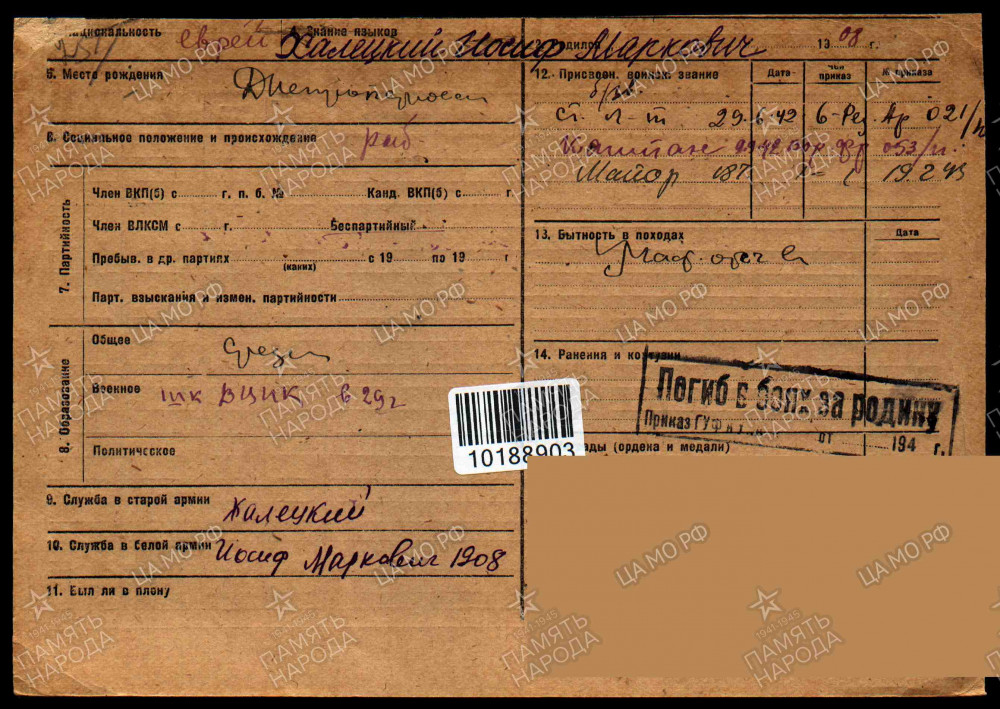 Национальность еврей 4. Знание языков
Халецкий Иосиф Маркович
родился 1908 г.
5. Место рождения
Днепропетровск
6. Социальное положение и происхождение раб
7. Партийность
Член ВКП(б) с г. п. б. № Канд. ВКП(б) с г.
Член ВЛКСМ с г. Беспартийный
Пребыв. в др. партиях с 19 по 19 г
(каких)
Парт. взыскания и измен. партийности
8. Образование
Общее
Военное шк ВЦИК в 29 г
Политическое
9. Служба в старой армии
Халецкий
10. Служба в белой армии Иосиф Маркович 1908
11. Был ли в плену
12. Присвоен. воинск. звание Дата Чей приказ № приказа
Ст. л-т 29.6.42 021/н
Капитан 053/н.
Майор 187 19.2.43
13. Бытность в походах Дата
14. Ранения и контузии
Погиб в боях за родину
Приказ ГУФ от 194 г.
ды (ордена и медали)
10188903
ЦА МО РФ
1941-1945
ПАМЯТЬ
НАРОДА